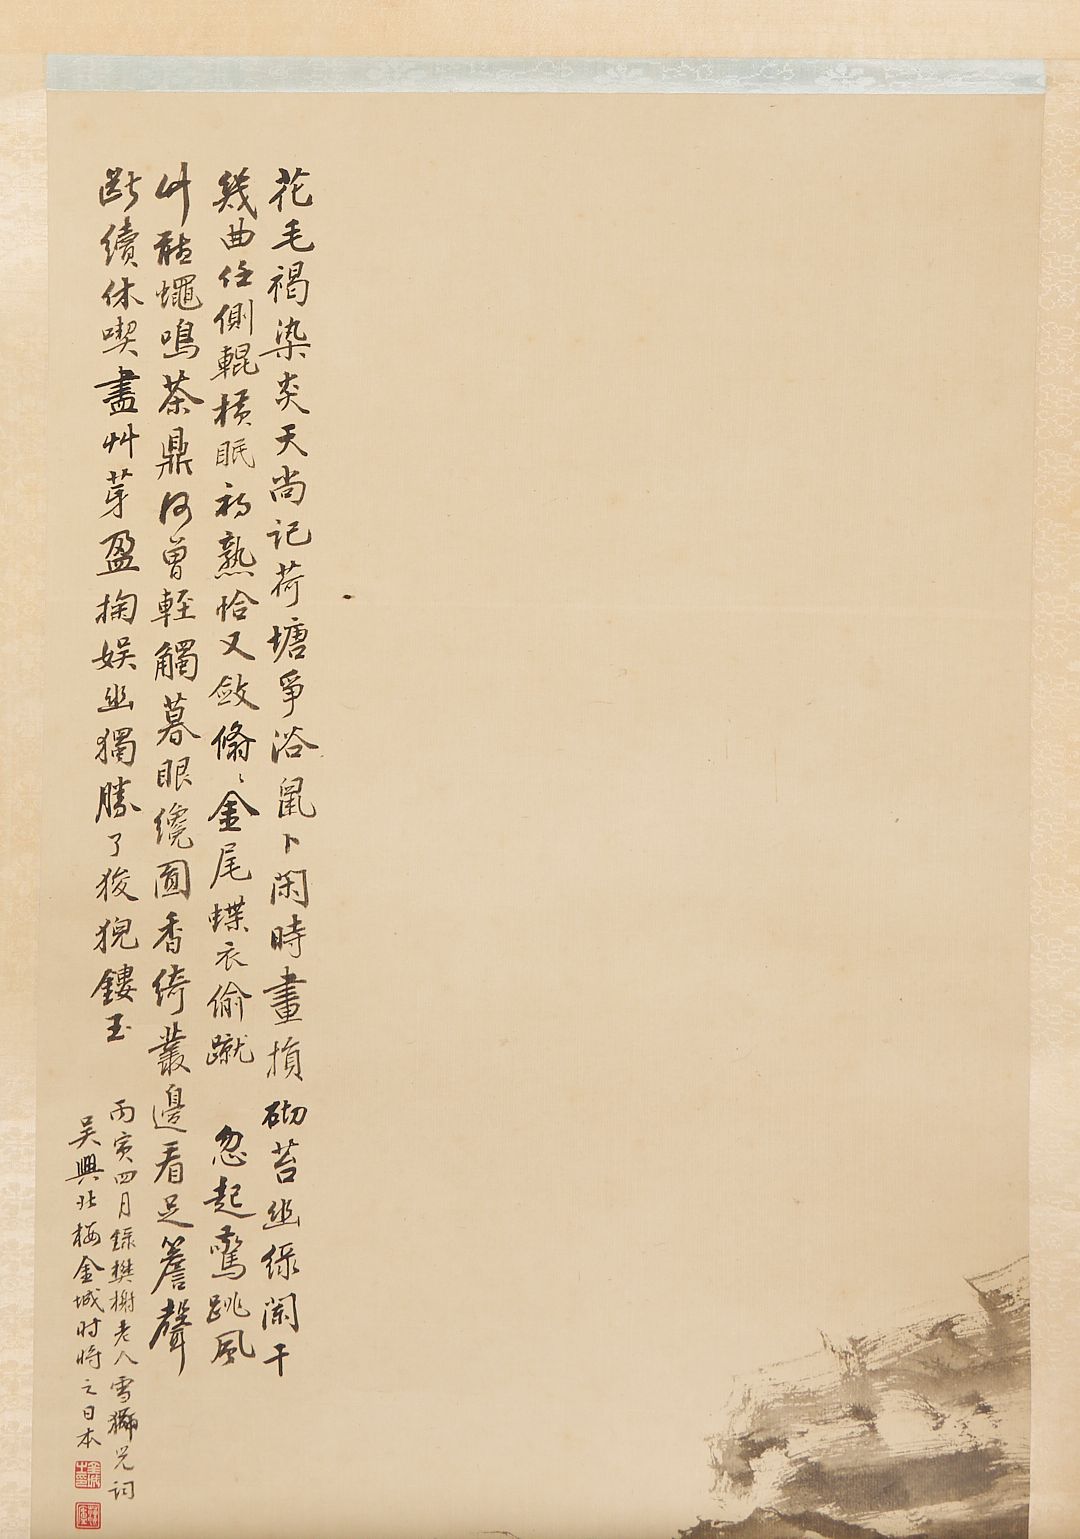 花毛褐染炎天尚記荷塘爭浴鼠卜閑時畫損砌苔幽綠闌干
幾曲任側輥橫眠初熟恰又斂翛〻金尾蝶衣偷蹴 忽起驚跳風
竹聒蠅鳴茶鼎何曾輕觸暮眼纔圓香綺叢邊看足簷聲
斷續休喫盡艸芽盈掬娛幽獨勝了狻猊鏤玉
丙寅四月錄樊榭老人雪獅兒詞
吳興北樓金城时將之日本